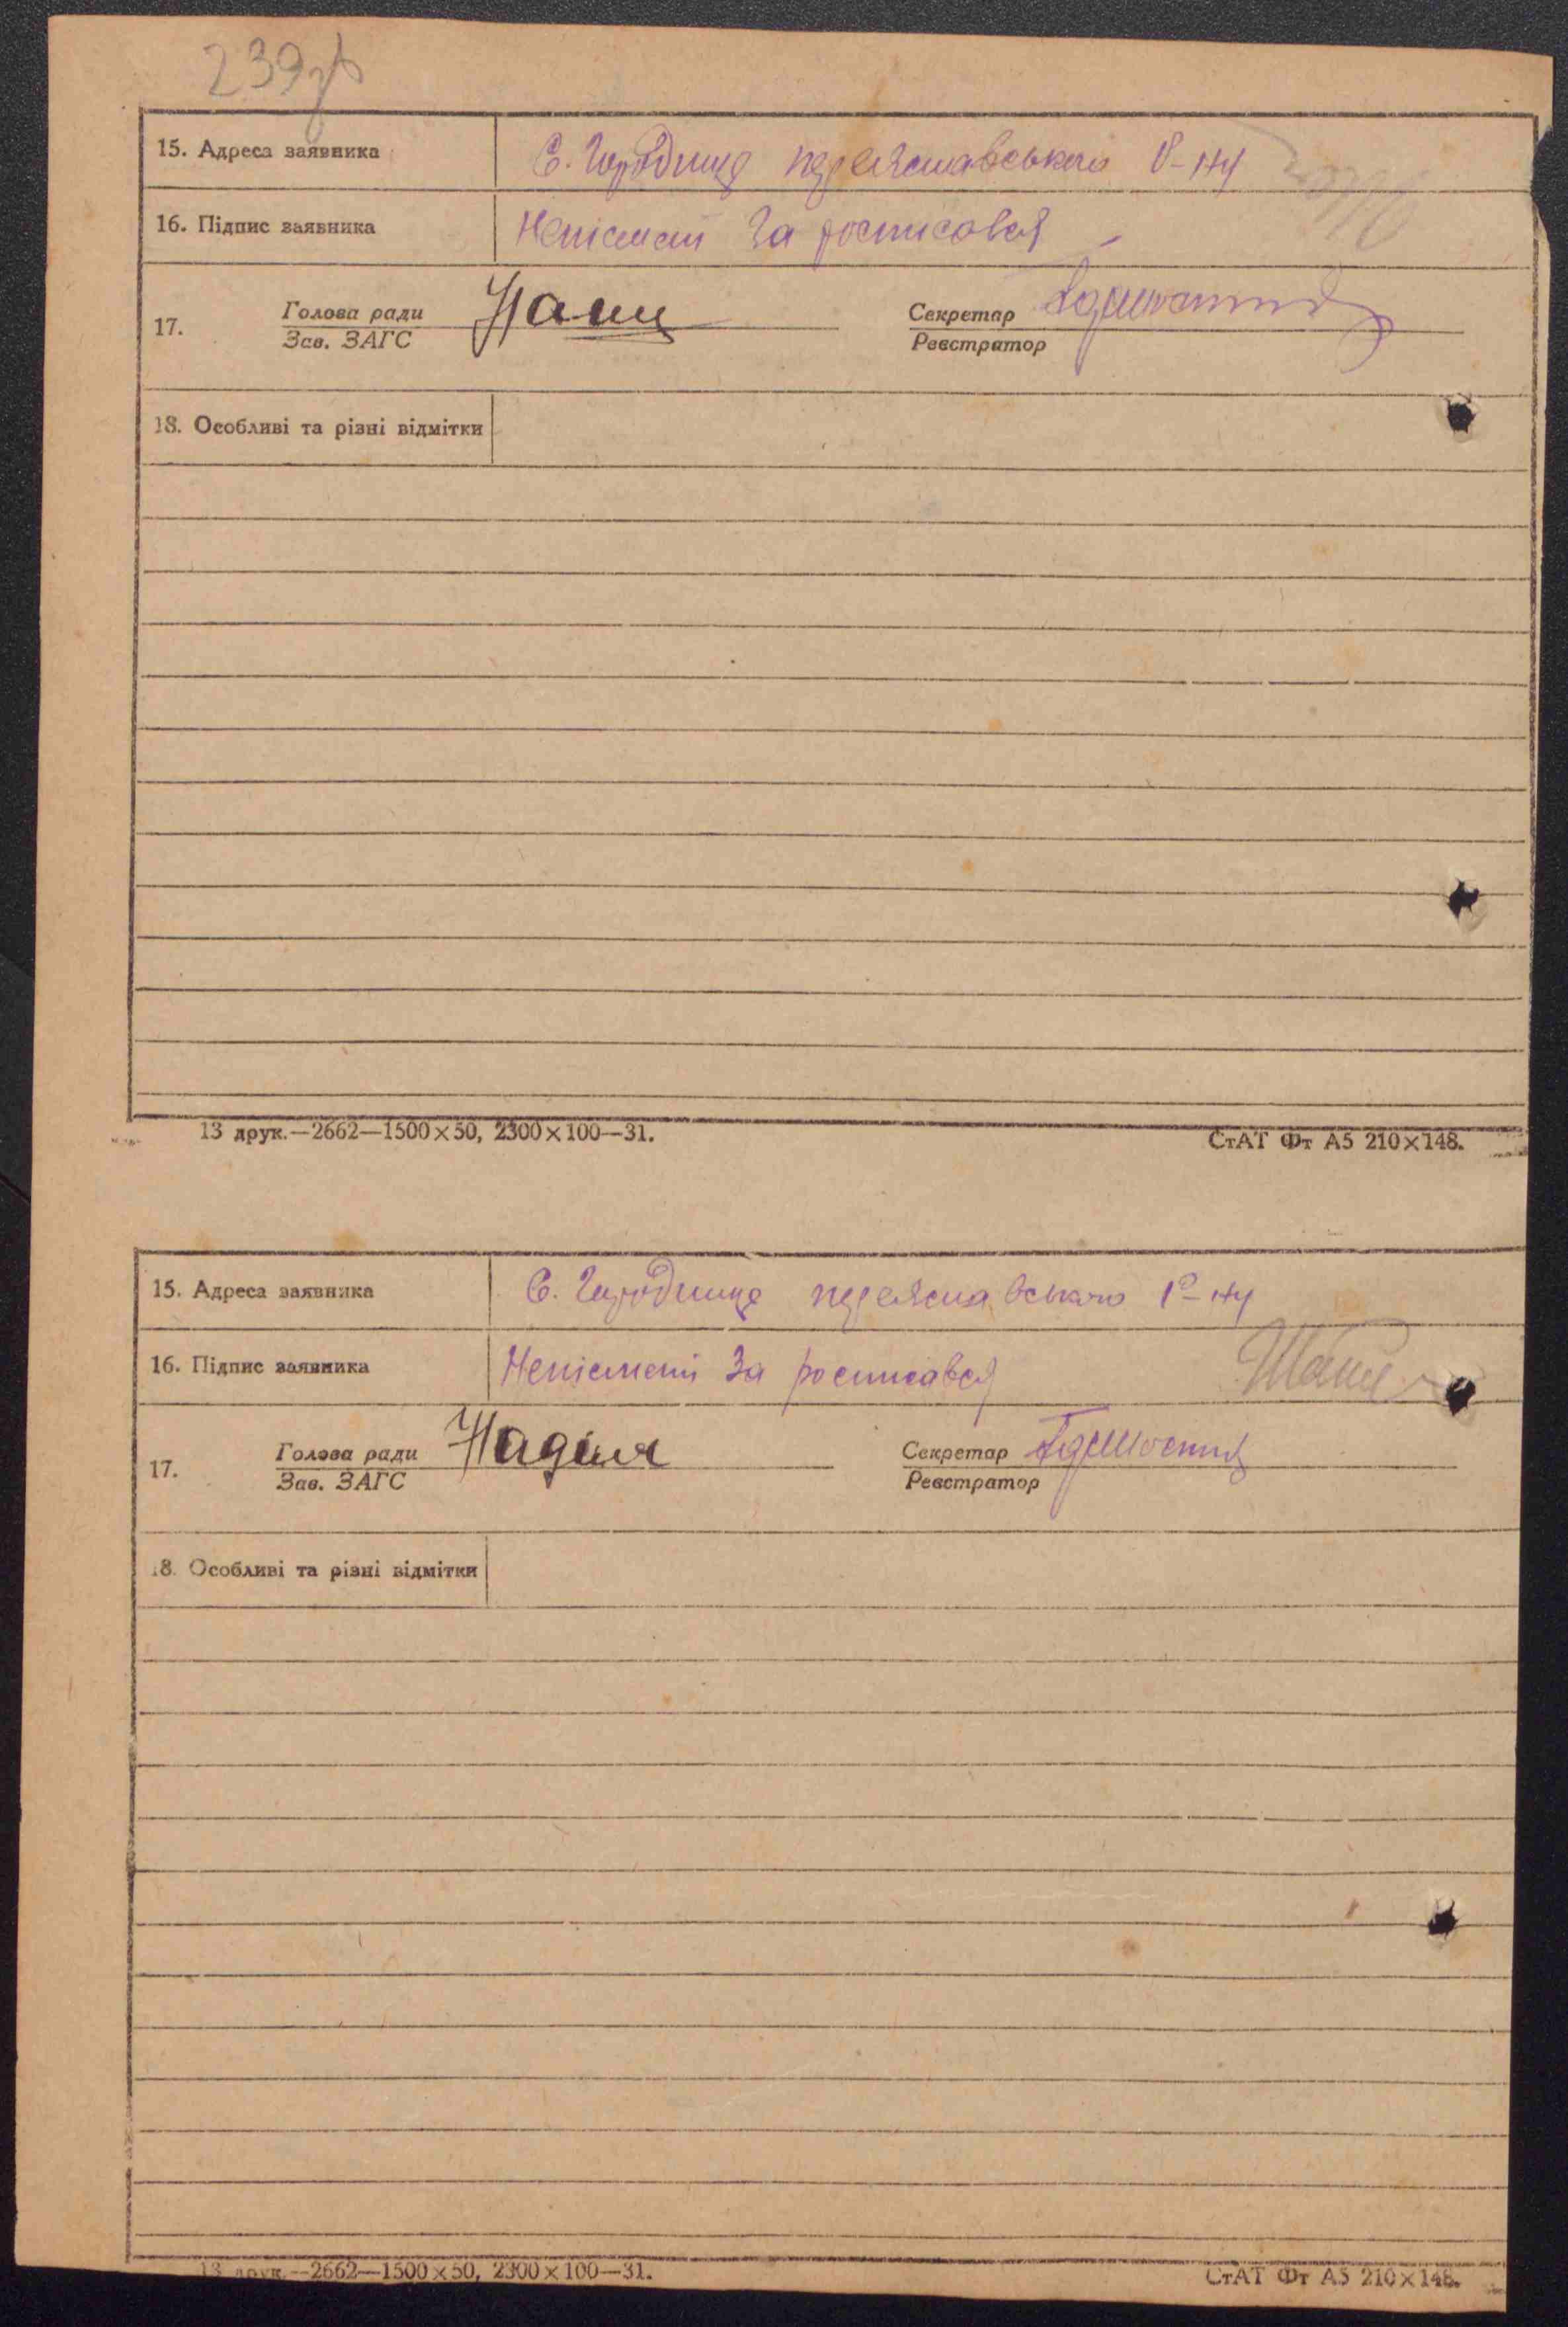 239зв
15. Адреса заявника С. Городище переяславського р-ну
16. Підпис заявника Неписьмений За росписався
17. Голова ради Секретар
Зав. ЗАГС Реєстратор
18. Особливі та різні відмітки
13 друк.—2662—1500×50, 2300×100—31. СтАТ Фт А5 210×148.
15. Адреса заявника С. Городище переяславського р-ну
16. Підпис заявника Неписьмений За росписався
17. Голова ради Секретар
Зав. ЗАГС Реєстратор
18. Особливі та різні відмітки
13 друк.—2662—1500×50, 2300×100—31. СтАТ Фт А5 210×148.